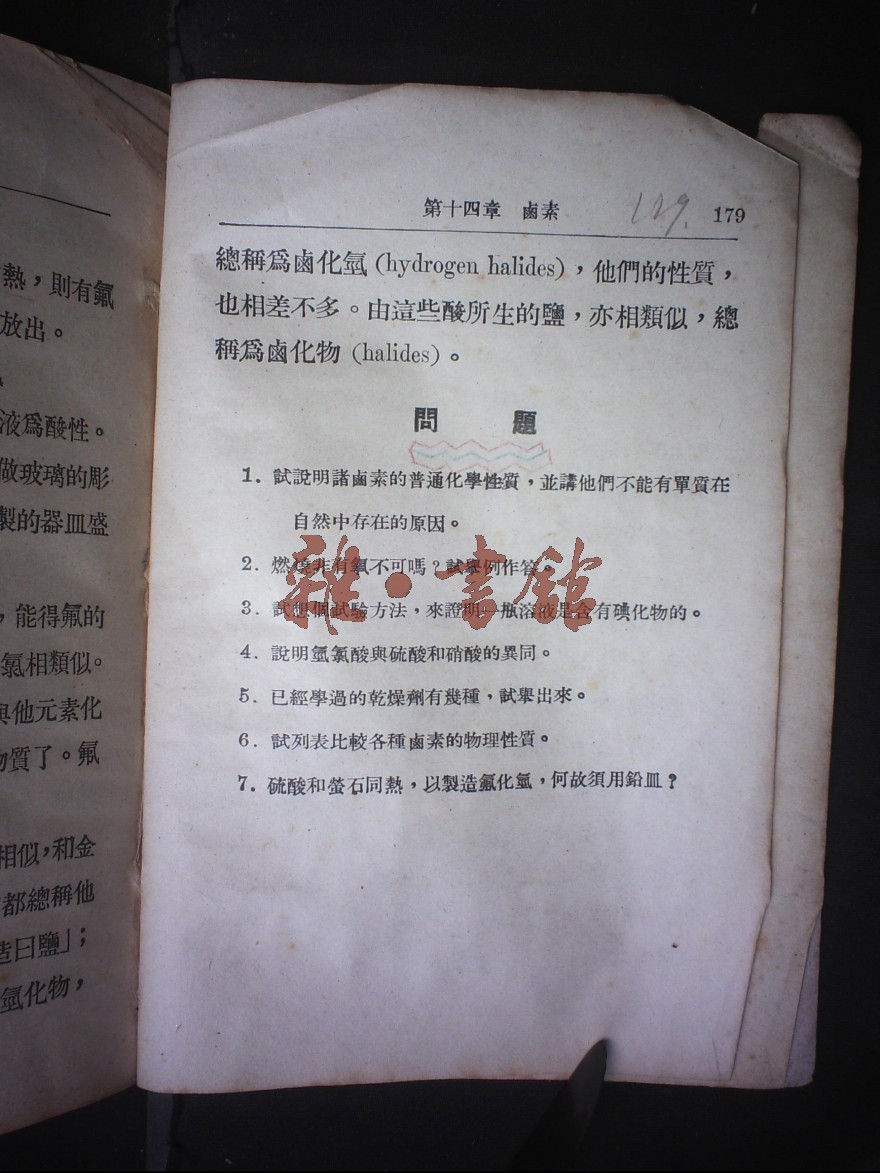 熱，則有氟
放出。
液爲酸性。
做玻璃的彫
製的器皿盛
，能得氟的
氯相類似。
與他元素化
物質了。氟
相似，和金
都總稱他
造曰鹽」；
氫化物，
第十四章 鹵素 129. 179
總稱爲鹵化氫 (hydrogen halides)，他們的性質，
也相差不多。由這些酸所生的鹽，亦相類似，總
稱爲鹵化物 (halides)。
問 題
1. 試說明諸鹵素的普通化學性質，並講他們不能有單質在
自然中存在的原因。
2. 燃燒非有氧不可嗎？試舉例作答。
3. 試想個試驗方法，來證明一瓶溶液是含有碘化物的。
4. 說明氫氯酸與硫酸和硝酸的異同。
5. 已經學過的乾燥劑有幾種，試舉出來。
6. 試列表比較各種鹵素的物理性質。
7. 硫酸和螢石同熱，以製造氟化氫，何故須用鉛皿？
雜·書館